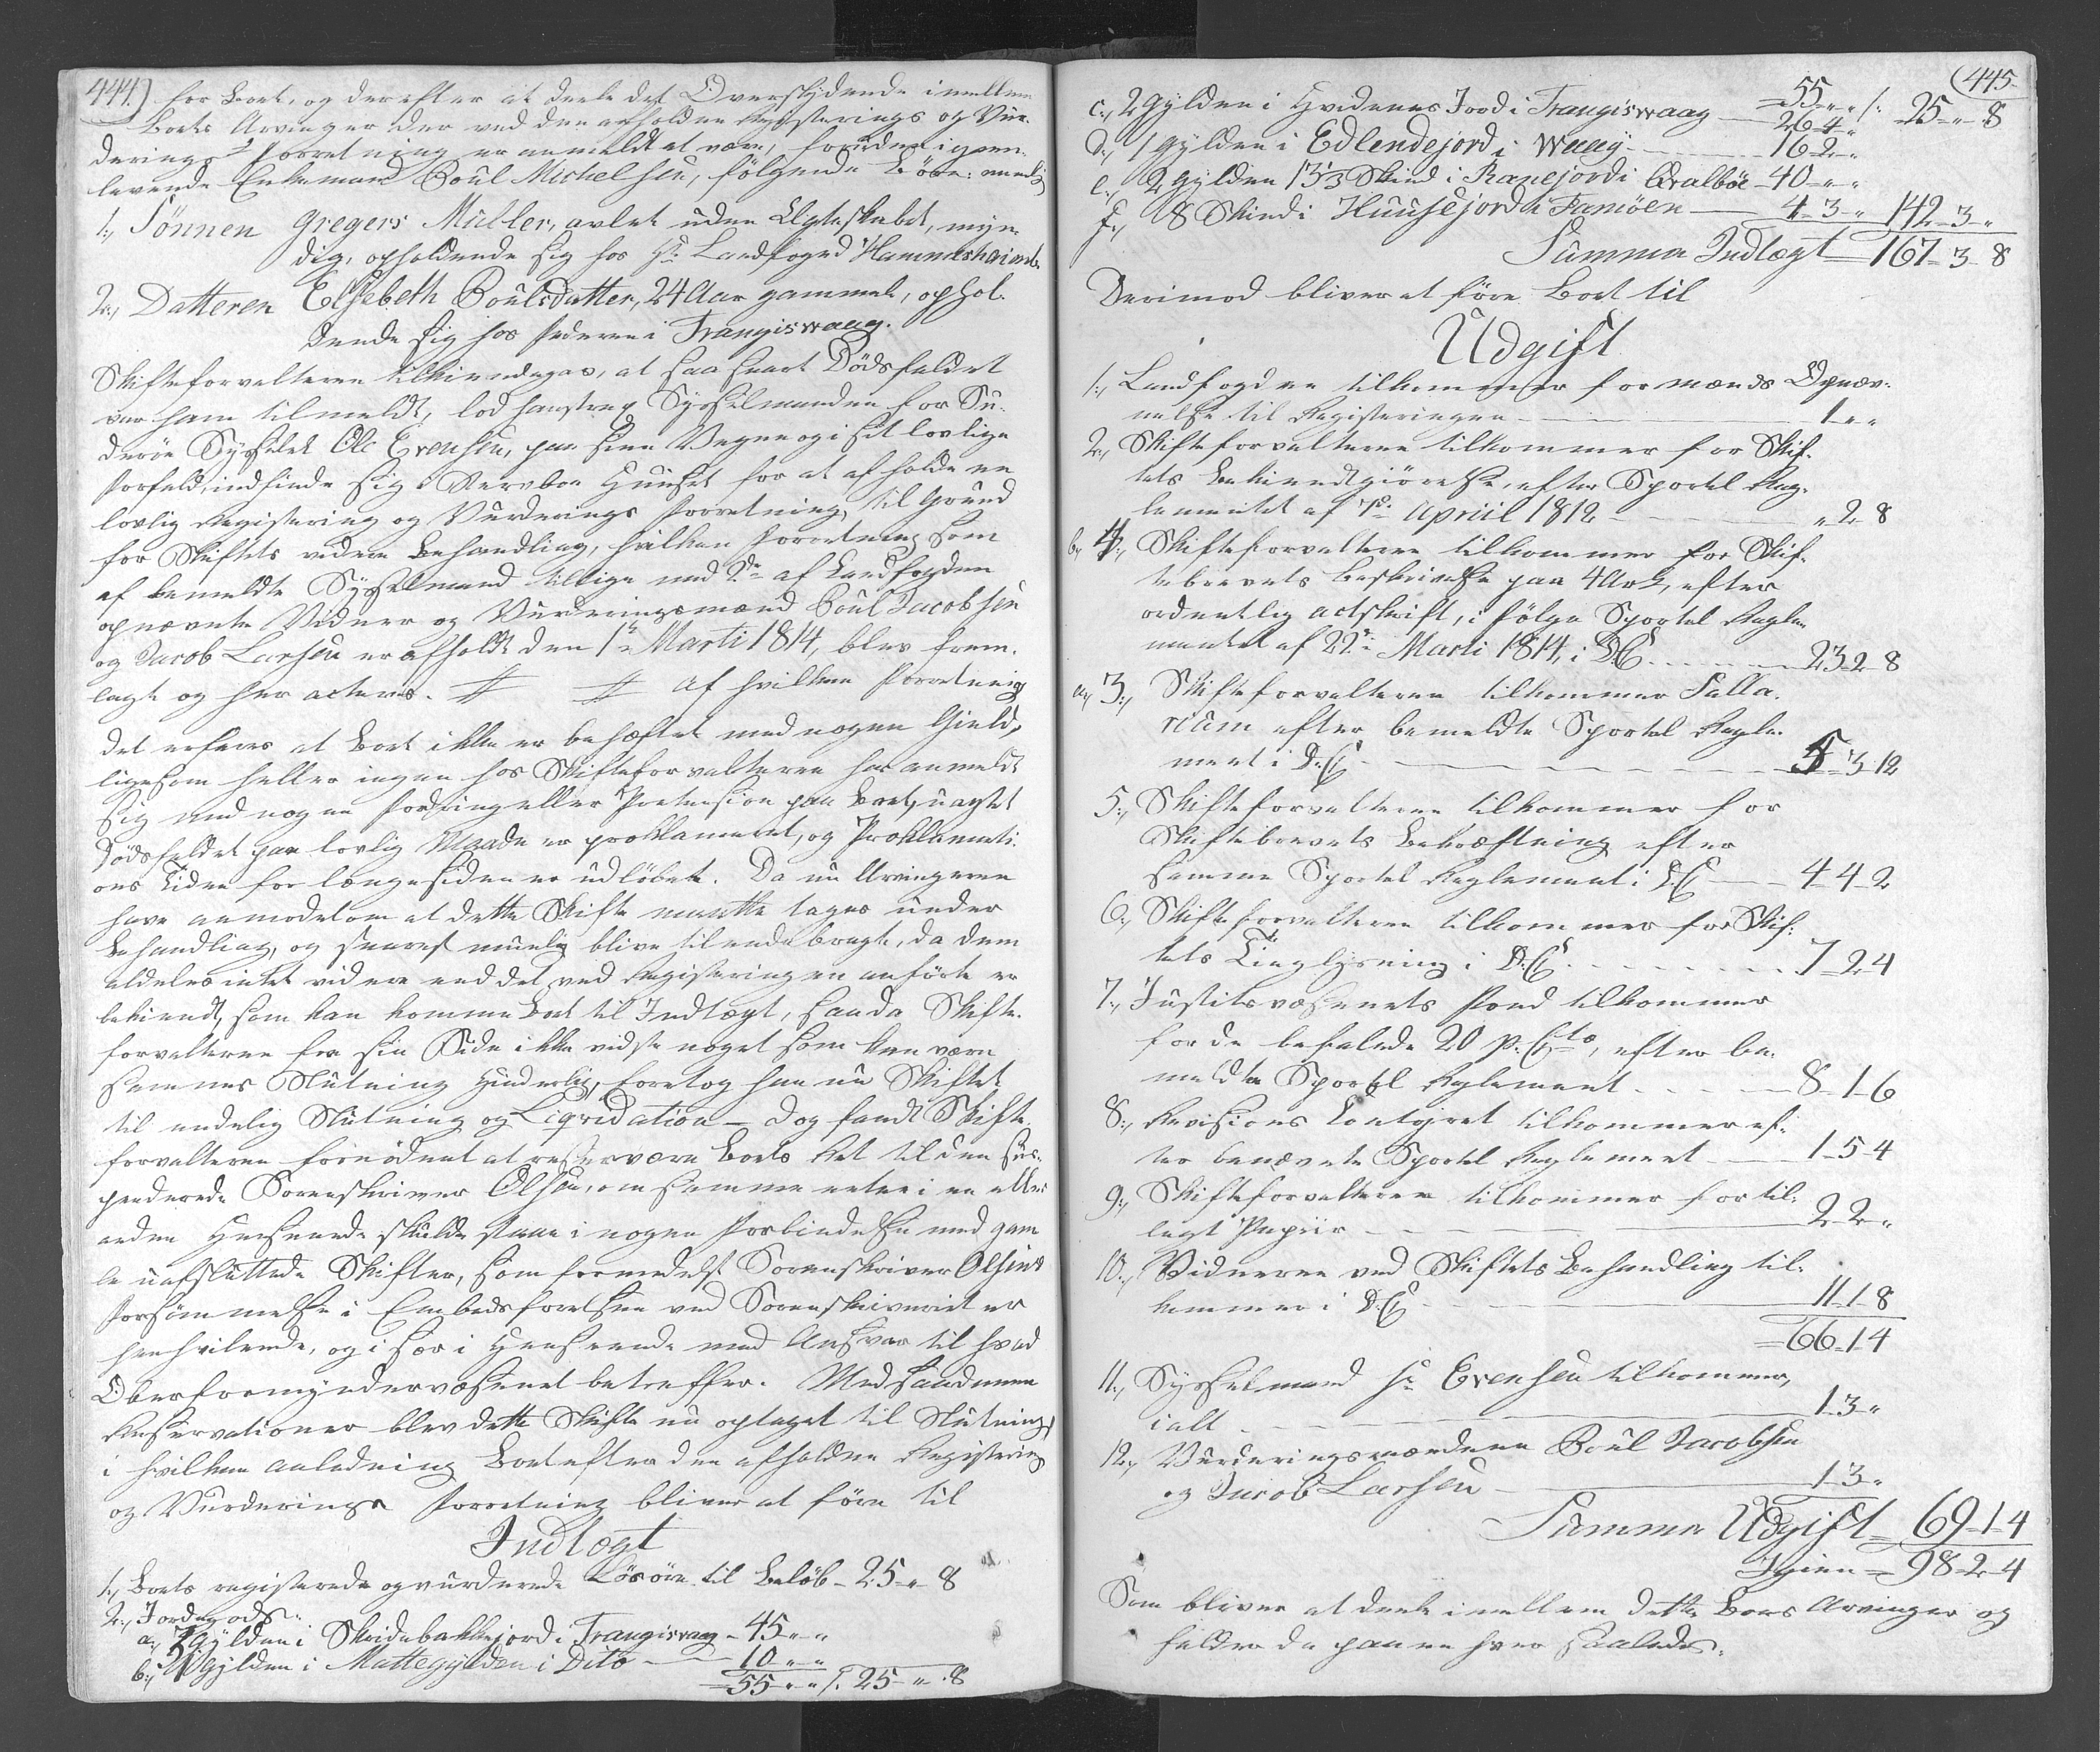 444.)
for Boet, og derefter at deele det Overskydende imellem
Boets Arvinger der ved den afholdne Registerings og Vur-
derings Forretning er anmeldt at være, foruden igjen-
levende Enkemand Poul Michelsen, følgende Børn: nemlig
1:, Sønnen Gregers Müller, avlet uden Ægteskabet, myn-
dig, opholdende sig hos Hr. Landfoged Hammershaimb.
2:, Datteren Elsebeth Poulsdatter, 24 Aar gammel, ophol-
dende sig hos Faderen i Trangiswaag.
Skifteforvalteren tilkiendegav, at saasnart Dødsfaldet
var ham tilmeldt, lod han strax Sysselmanden for Su-
derøe Sysselet Ole Evensen, paa sine Vegne og i sit lovlige
Forfald, indfinde sig i Stervboe Huuset for at afholde en
lovlig Registering og Vurderings Forretning, til Grund
for Skiftets videre Behandling, hvilken Forretning som
af bemeldte Sysselmand tillige med 2de af Landfogden
opnævnte Vidner og Vurderingsmænd Poul Jacobsen
og Jacob Larsen er afholdt den 1te Marti 1814, blev frem-
lagt og her acteres. # # Af hvilken Forretning
det erfares at Boet ikke er behæftet med nogen Gield,
ligesom heller ingen hos Skifteforvalteren har anmeldt
sig med nogen Fordring eller Prætension paa Boet, uagtet
Dødsfaldet paa lovlig Maade er proklameret, og Proklamati-
ons Tiden for længesiden er udløbet. Da nu Arvingerne
have anmodet om at dette Skifte maatte tages under
Behandling, og snarest muelig blive tilendebragt, da dem
aldeles intet videre end det ved Registeringen anførte er
bekiendt, som kan komme Boet til Indtægt, saa da Skifte-
forvalteren fra sin Side ikke vidste noget som kan være
sammes Slutning hinderlig, foretog han nu Skiftet
til endelig Slutning og Liqvidation – dog fandt Skifte-
forvalteren fornødent at reservere Boets Ret til den sus-
penderede Sorenskriver Olsen, om samme enten i en eller
anden Henseende skulde staae i nogen Forbindelse med gam-
le uafsluttede Skifter, som formedelst Sorenskriver Olsens
Forsømmelse i Embedsførelsen ved Sorenskriveriet er
henhvilende, og i sær i Henseende med Ansvar til hvad
Overformyndervæsenet betreffer. Med saadanne
Reservationer blev dette Skifte nu optaget til Slutning,
i hvilken Anledning Boet efter den afholdne Registering
og Vurderings Forretning bliver at føre til
Indtægt
1:, Boets registerede og vurderede Løsøre til Beløb - 25 - „ 8
2:, Jordegods:
a:, 3 Gylden i Skeidebakkejord i Trangiswaag - 45 „ „
b:, 1 Gylden i Mattegylden i Dito - 10 „ „
= 55 „ „ /: 25 - „ 8
(445
55 „ „ /: 25 - „ 8
c:, 2 Gylden i Hvedenes Jord i Trangiswaag - 26-4 „
d:, 1 Gylden i Edlendejord i Waag - 16-2 „
e:, 2 Gylden 13⅓ Skind i Ranejord i Qvalbøe - 40 „ „
f:, 8 Skind i Huusejord i Famöen - 4-3 „ 142-3 „
Summa Indtægt = 167-3-8
Derimod bliver at føre Boet til
Udgift
1:, Landfogden tilkommer for mænds Opnæv-
nelse til Registeringen - 1 „ „
2:, Skifteforvalteren tilkommer for Skif-
tets Bekiendtgiørelse, efter Sportel Reg-
lementet af 7de Apriil 1812 - „ 2 8
b, 4:, Skifteforvalteren tilkommer for Skif-
tebrevets Beskrivelse paa 4 Ark, efter
ordentlig Actskrift, i følge Sportel Regle-
mentet af 22de Marti 1814, i S.C. - 23-2-8
a, 3:, Skifteforvalteren tilkommer Salla-
rium efter bemeldte Sportel Regle-
ment i S.C. - 5-3-12
5:, Skifteforvalteren tilkommer for
Skiftebrevets Bekræftning efter
samme Sportel Reglement i S.C. - 4-4-2
6:, Skifteforvalteren tilkommer for Skif-
tets Tinglysning i S.C. - 7-2-4
7:, Justitsvæsenets Fond tilkommer
for de befalede 20 p.Cto, efter be-
meldte Sportel Reglement - 8-1-6
8:, Revisions Contoiret tilkommer ef-
ter benævnte Sportel Reglement - 1-5-4
9:, Skifteforvalteren tilkommer for til-
lagt Papiir - 2-2 „
10:, Vidnerne ved Skiftets Behandling til-
kommer i S.C. - 11-1-8
= 66-1-4
11:, Sysselmand Hr. Evensen tilkommer,
i alt - 1-3 „
12:, Vurderingsmændene Poul Jacobsen
og Jacob Larsen - 1-3 „
Summa Udgift = 69-1-4
Igien = 98-2-4
Som bliver at deele imellem dette Boes Arvinger og
falder da paa en hver saaledes: